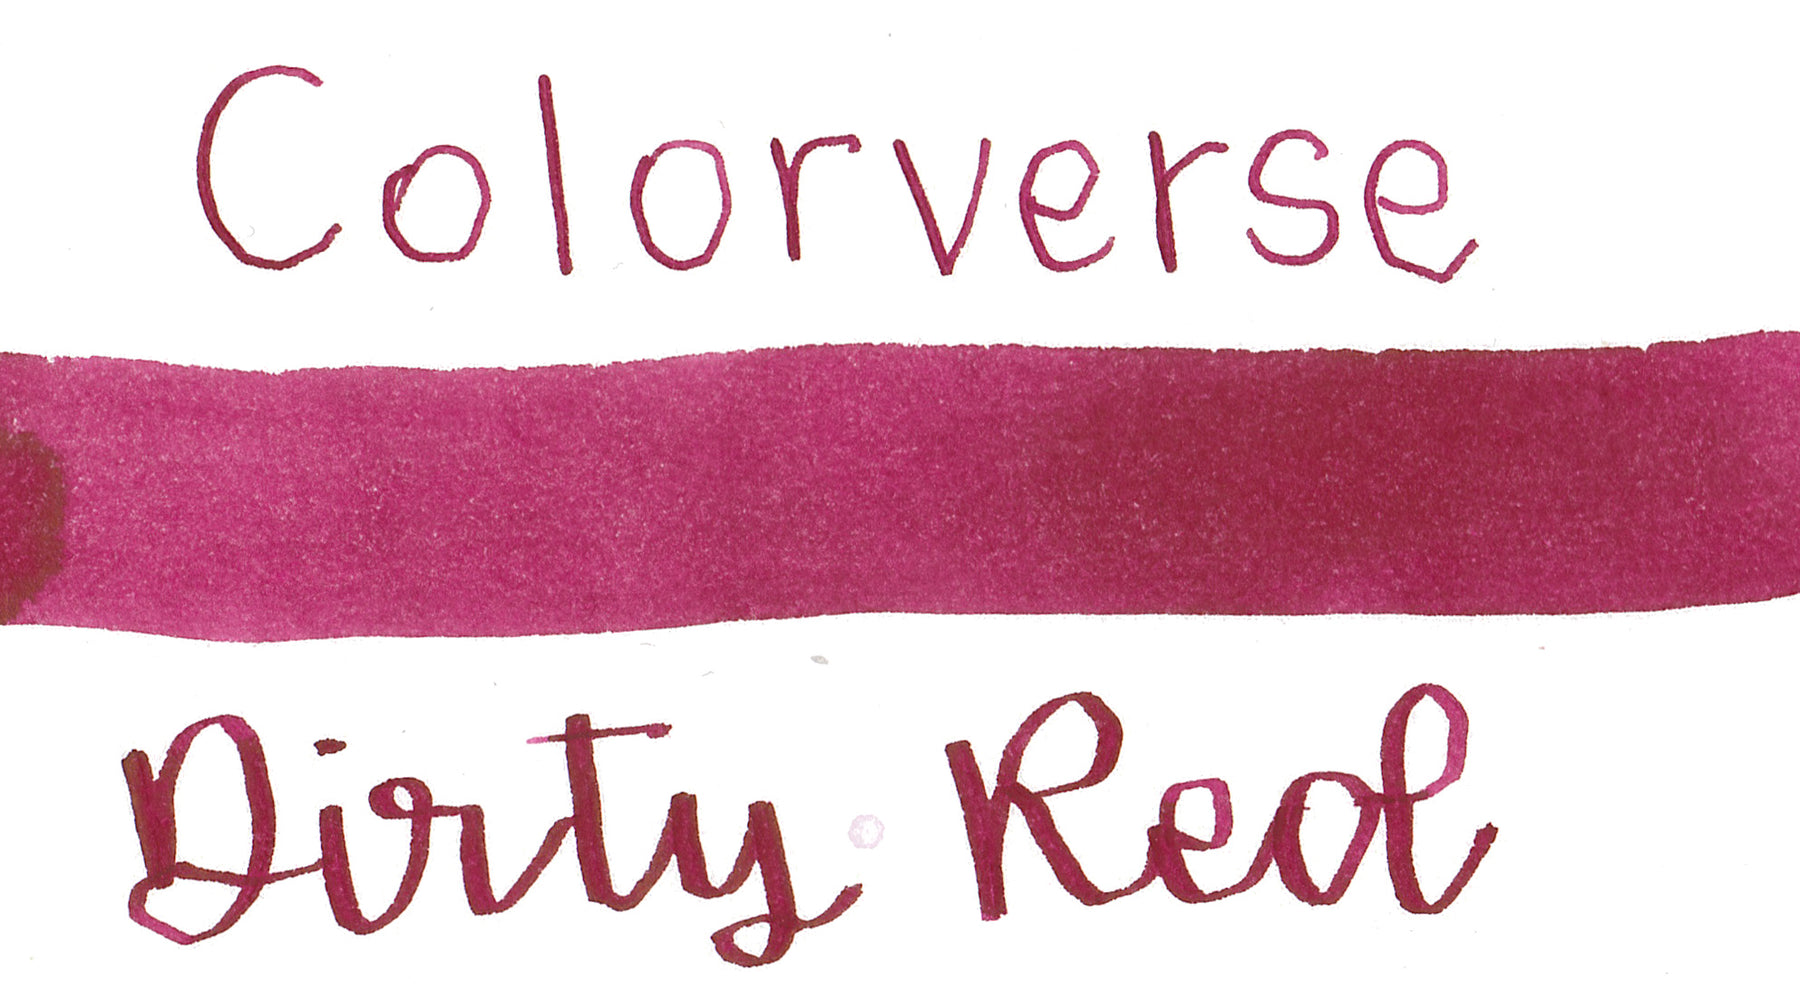 Colorverse
Dirty Red